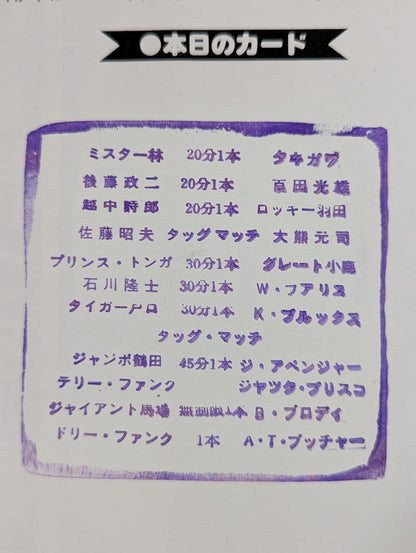 ●本日のカード
ミスター林 20分1本 タキガワ
後藤政二 20分1本 百田光雄
越中詩郎 20分1本 ロッキー羽田
佐藤昭夫 タッグマッチ 大熊元司
プリンス・トンガ 30分1本 グレート小鹿
石川隆士 30分1本 W・フアリス
タイガー戸口 30分1本 K・ブルックス
タッグ・マッチ
ジャンボ鶴田 45分1本 ジ・アベンジャー
テリー・ファンク ジャツク・ブリスコ
ジャイアント馬場 無制限1本 B・ブロデイ
ドリー・ファンク 1本 A・T・ブッチャー